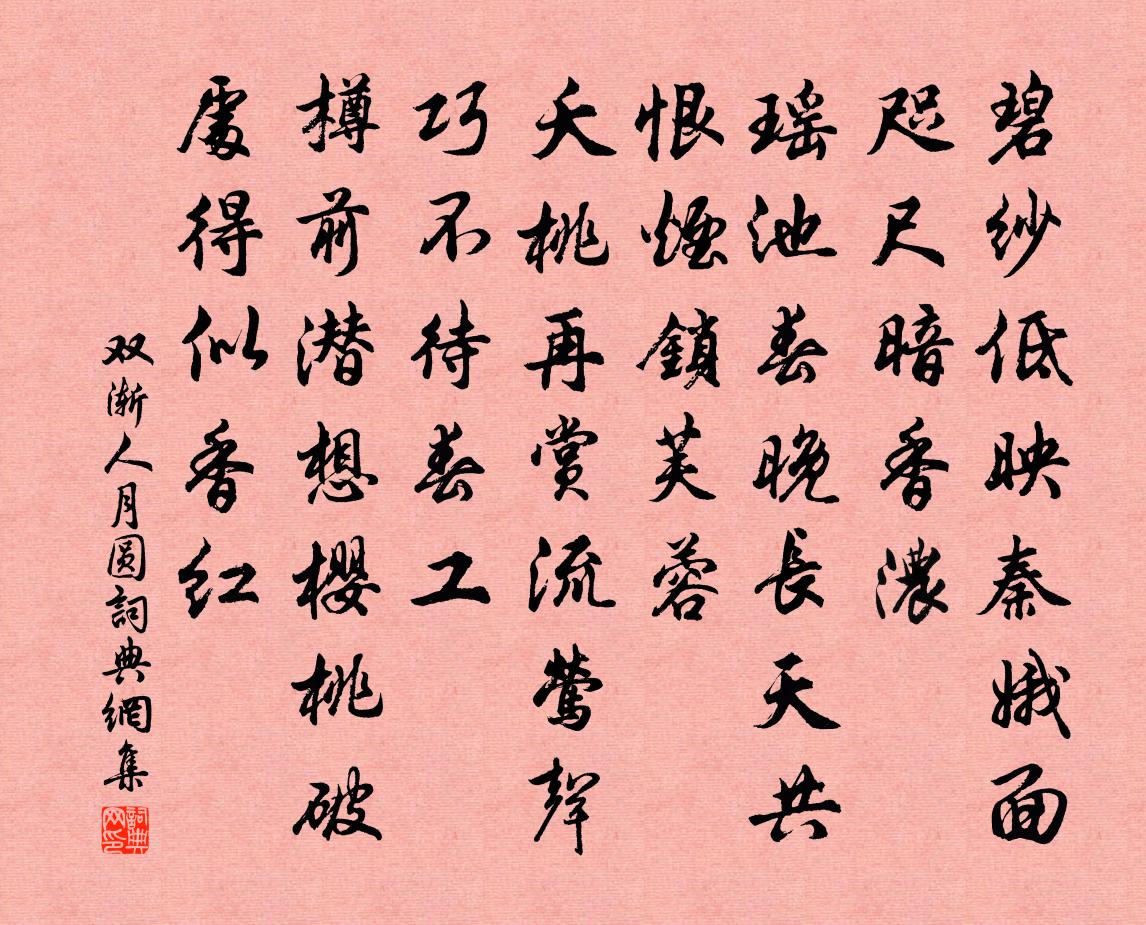 碧紗低映秦娥面
咫尺暗香濃
瑶池春晚長天共
恨煙鎖芙蓉
夭桃再赏流莺聲
巧不待春工
樽前潜想櫻桃破
處得似香红
双渐人月圆詞典網集
詞典网印